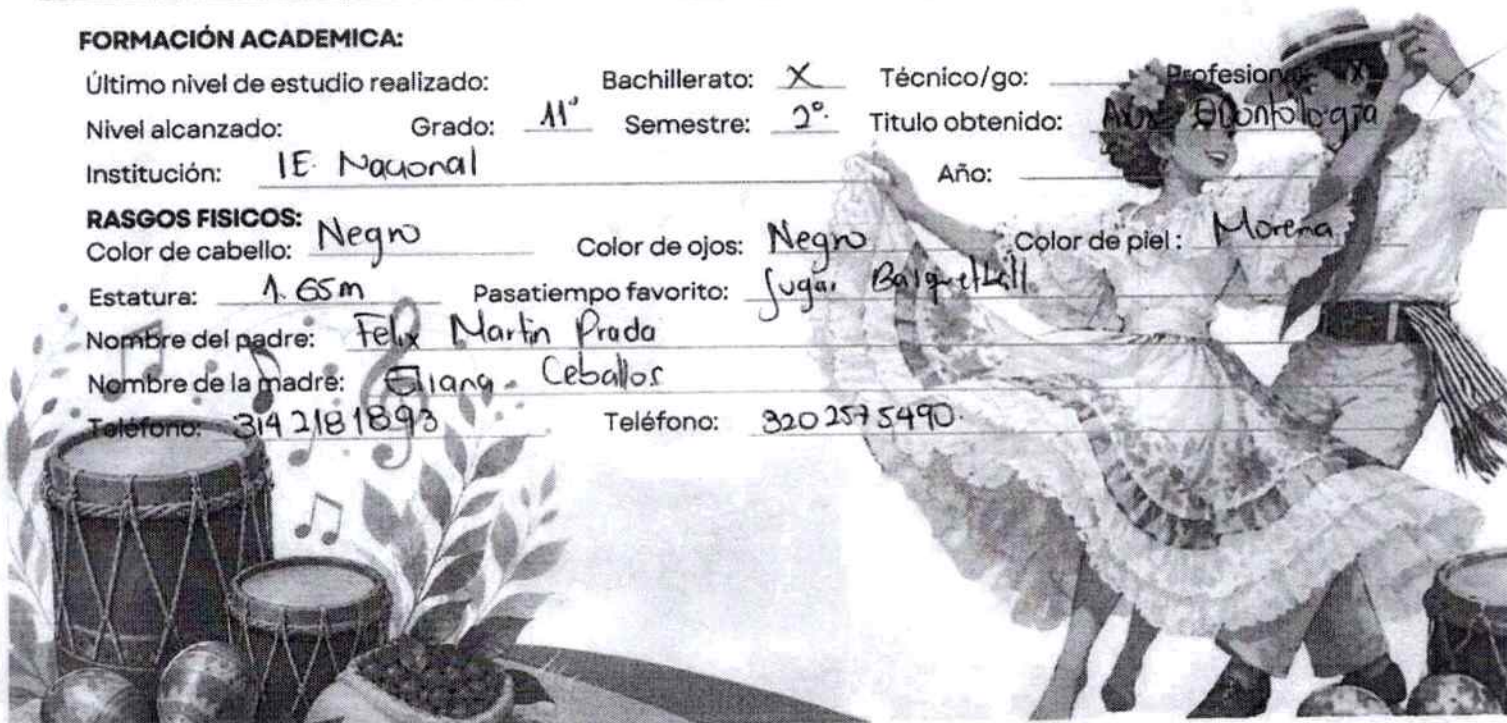 FORMACIÓN ACADEMICA:
Último nivel de estudio realizado: Bachillerato: X Técnico/go: Profesional: X
Nivel alcanzado: Grado: 11° Semestre: 2°. Titulo obtenido: Aux Odontología
Institución: IE. Nacional Año:
RASGOS FISICOS:
Color de cabello: Negro Color de ojos: Negro Color de piel: Morena
Estatura: 1.65m Pasatiempo favorito: Jugar Basquetball.
Nombre del padre: Felix Martin Prada
Nombre de la madre: Eliana Ceballos
Teléfono: 314 2181893 Teléfono: 320 257 5490.